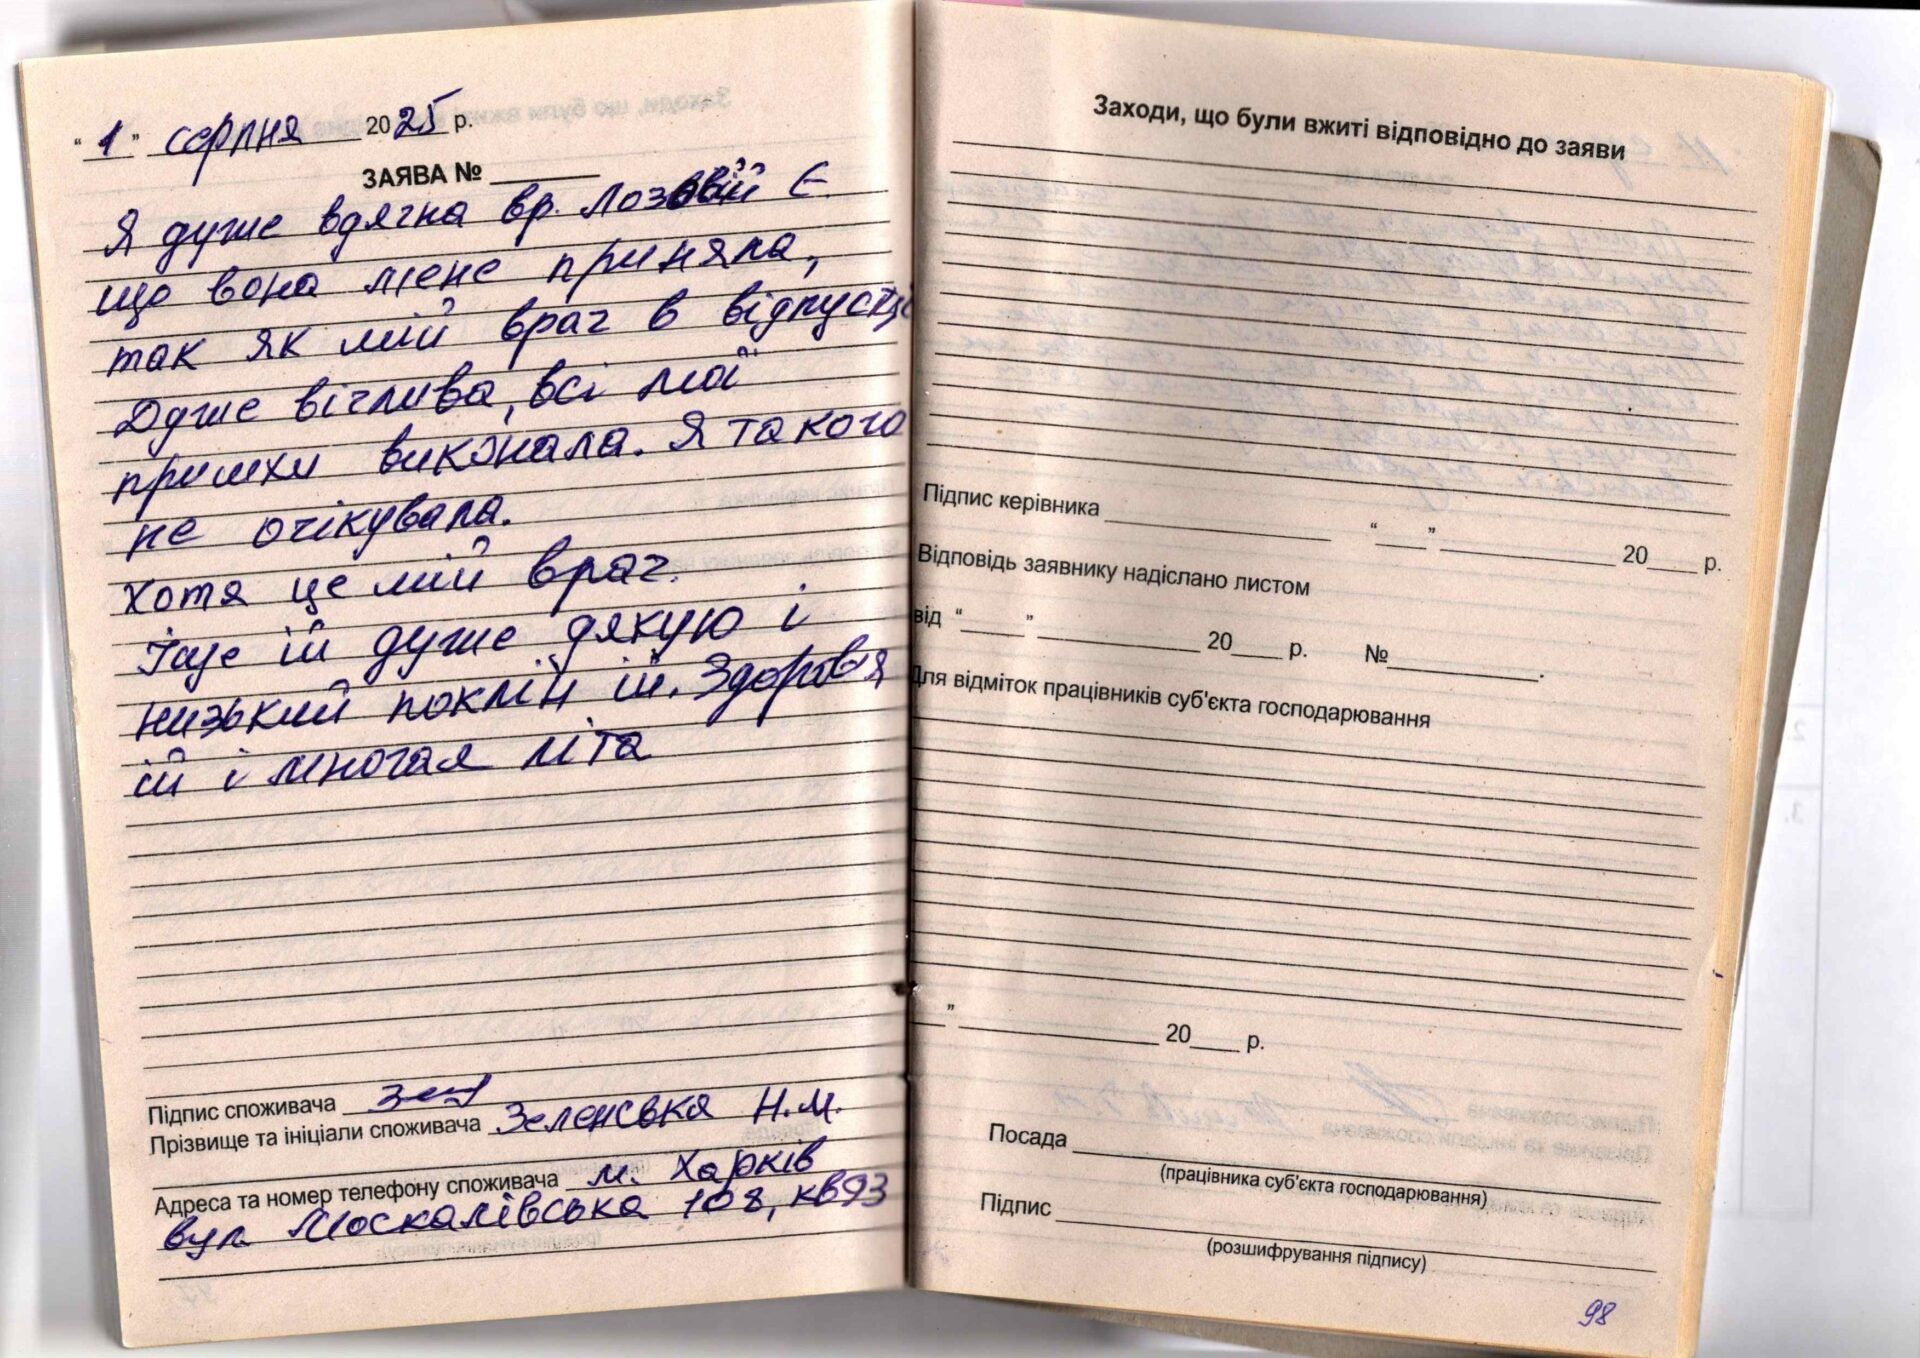 "1" серпня 2025 р.
ЗАЯВА №
Я дуже вдячна вр. Лозовій Є.
що вона мене приняла,
так як мій врач в відпустці
Дуже вічлива, всі мої
примхи виконала. Я такого
не очікувала.
Хотя це мій врач.
Іще ій дуже дякую і
низький поклін ій. Здоровья
ій і многая літа
Підпис споживача
Прізвище та ініціали споживача Зеленсвка Н.М.
Адреса та номер телефону споживача м. Харків
вул Москалівська 108, кв93
Заходи, що були вжиті відповідно до заяви
Підпис керівника " " 20 р.
Відповідь заявнику надіслано листом
від " " 20 р. № .
Для відміток працівників суб'єкта господарювання
" 20 р.
Посада
(працівника суб'єкта господарювання)
Підпис
(розшифрування підпису)
98